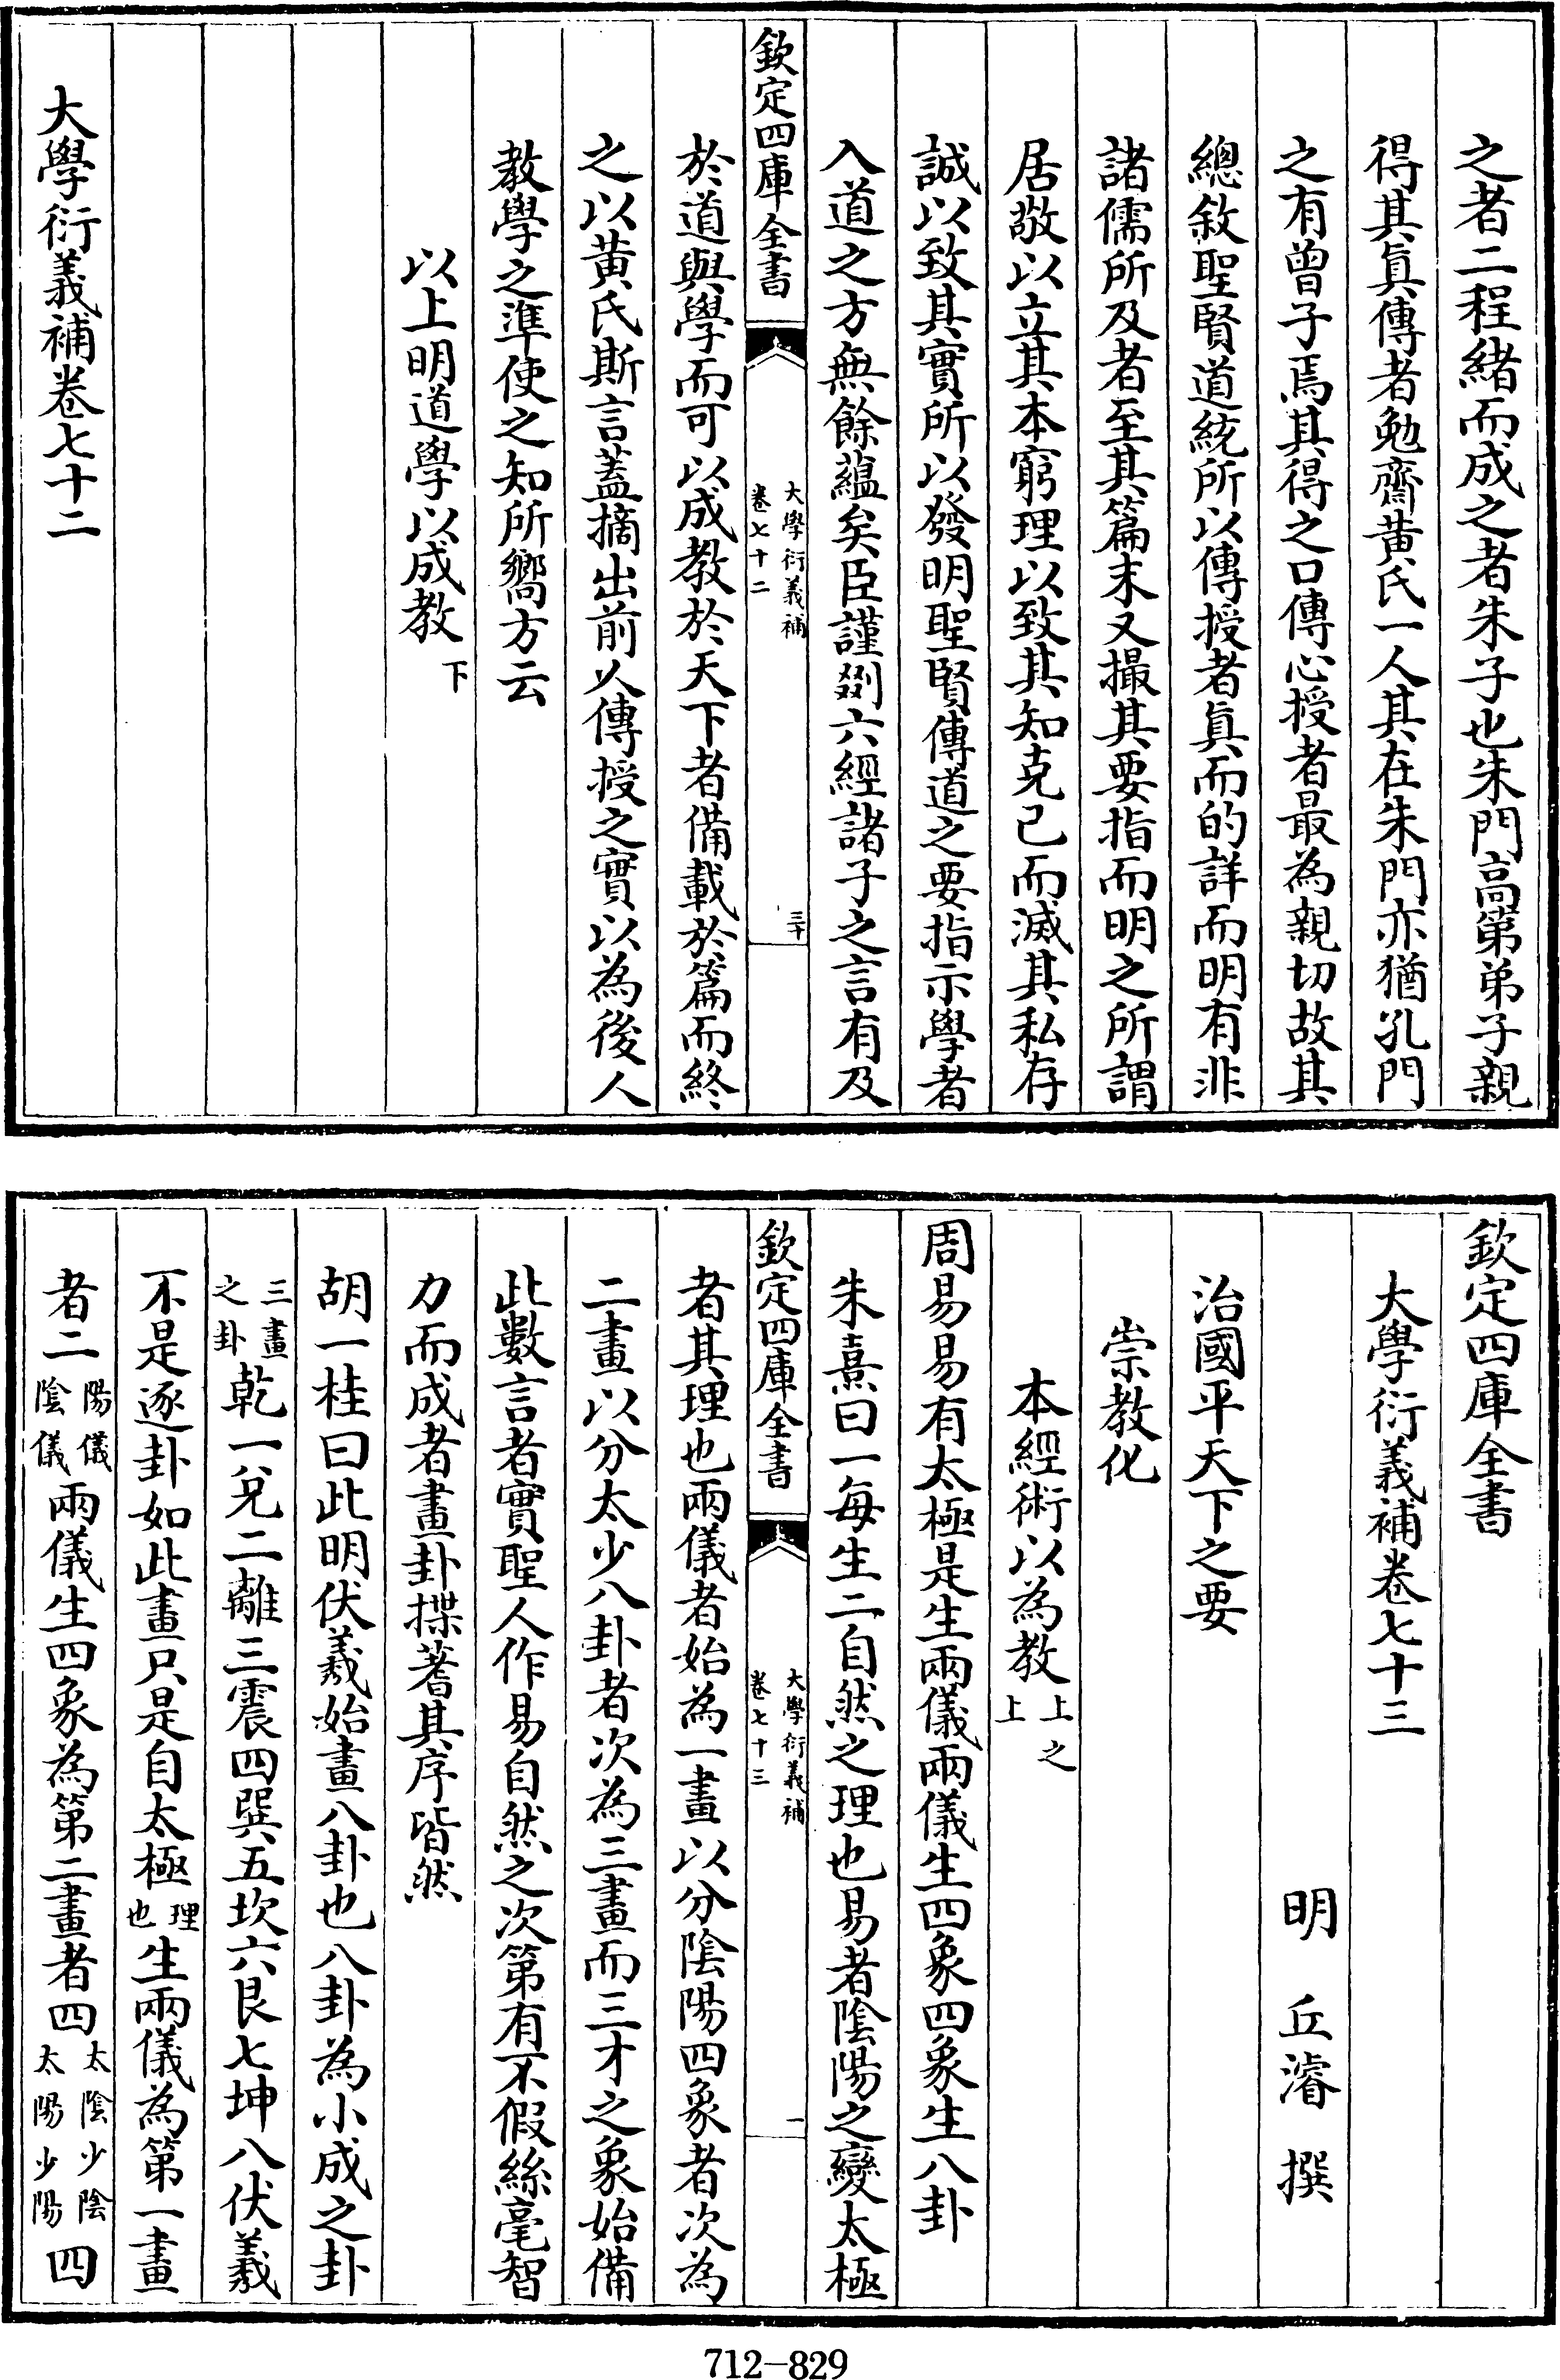 之者二程緒而成之者朱子也朱門高第弟子親
得其真傳者勉齋黄氏一人其在朱門亦猶孔門
之有曾子焉其得之口傳心授者最為親切故其
總敘聖賢道統所以傳授者真而的詳而明有非
諸儒所及者至其篇末又撮其要指而明之所謂
居敬以立其本窮理以致其知克己而滅其私存
誠以致其實所以發明聖賢傳道之要指示學者
入道之方無餘蘊矣臣謹剟六經諸子之言有及
欽定四庫全書
大學衍義補
卷七十二
三十
於道與學而可以成教於天下者備載於篇而終
之以黄氏斯言蓋摘出前人傳授之實以為後人
教學之準使之知所嚮方云
以上明道學以成教下
大學衍義補卷七十二
欽定四庫全書
大學衍義補卷七十三
明 丘濬 撰
治國平天下之要
崇教化
本經術以為教上之上
周易易有太極是生兩儀兩儀生四象四象生八卦
朱熹曰一每生二自然之理也易者陰陽之變太極
欽定四庫全書
大學衍義補
卷七十三
一
者其理也兩儀者始為一畫以分陰陽四象者次為
二畫以分太少八卦者次為三畫而三才之象始備
此數言者實聖人作易自然之次第有不假絲毫智
力而成者畫卦揲蓍其序皆然
胡一桂曰此明伏羲始畫八卦也八卦為小成之卦
三畫之卦乾一兌二離三震四巽五坎六艮七坤八伏羲
不是逐卦如此畫只是自太極理也生兩儀為第一畫
者二陽儀陰儀兩儀生四象為第二畫者四太陰少陰太陽少陽四
712-829